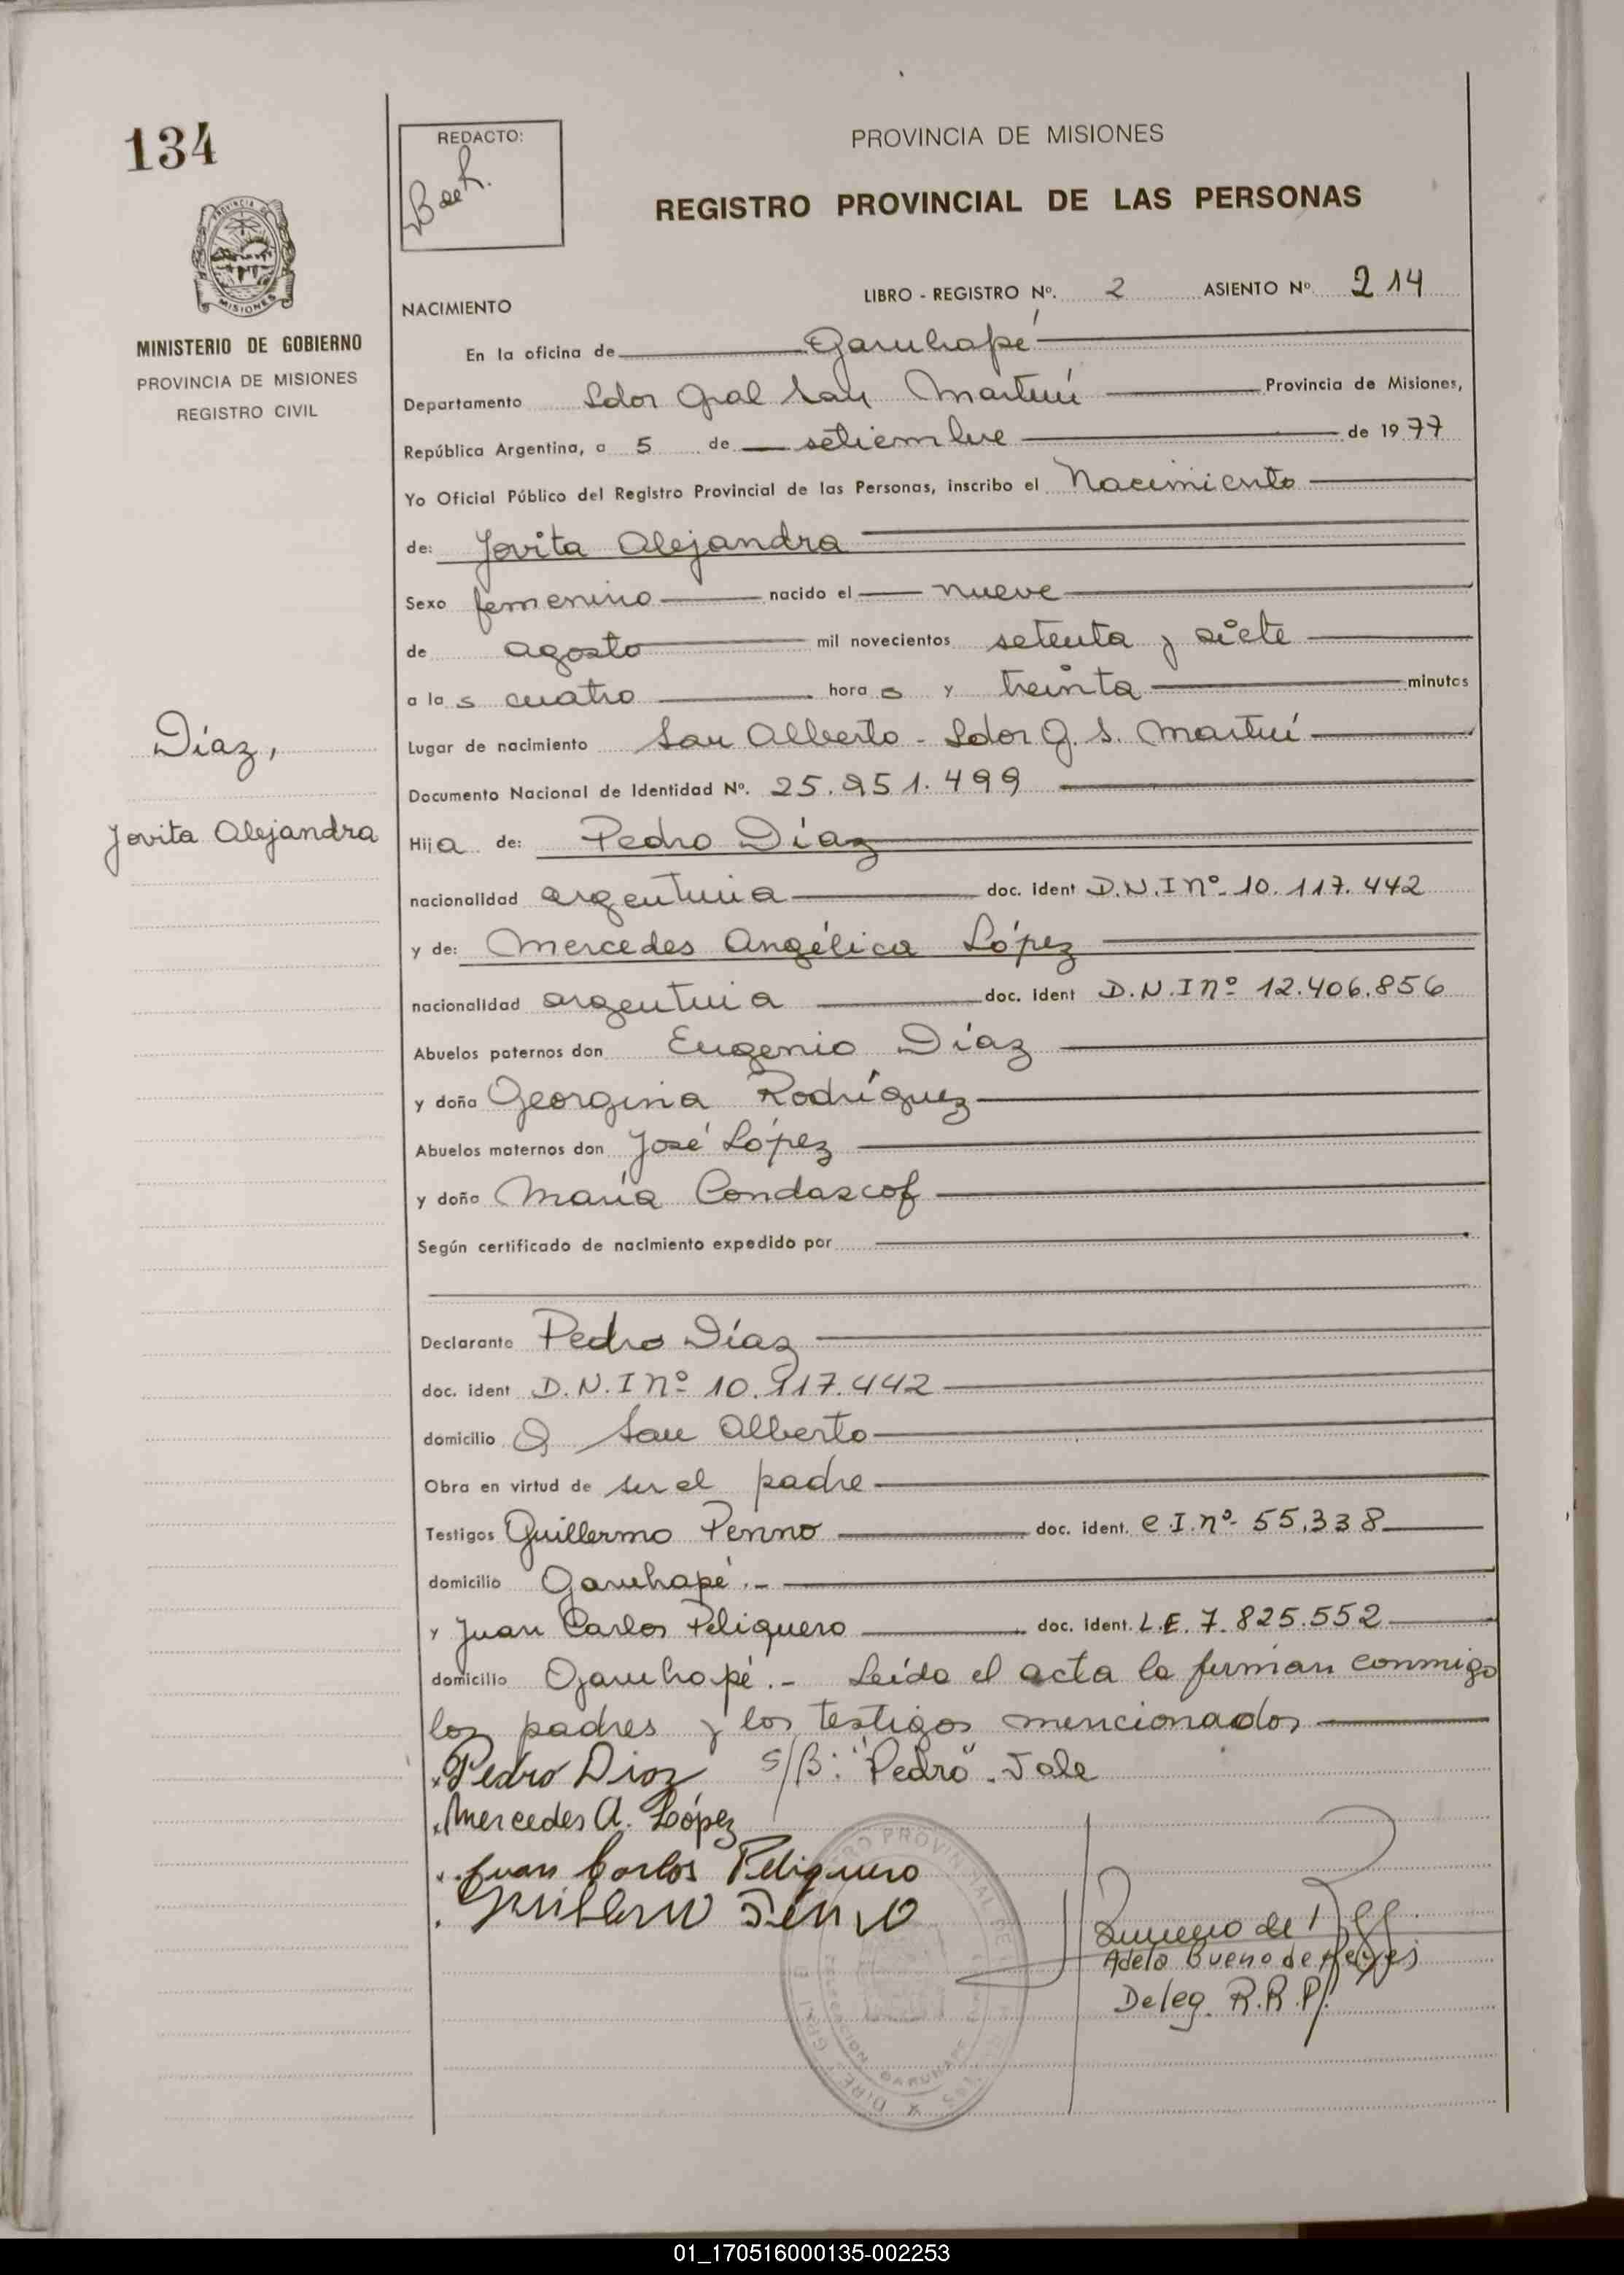 134
REDACTO:
PROVINCIA DE MISIONES
REGISTRO PROVINCIAL DE LAS PERSONAS
MISIONES
MINISTERIO DE GOBIERNO
PROVINCIA DE MISIONES
REGISTRO CIVIL
NACIMIENTO
LIBRO - REGISTRO Nº. 2 ASIENTO Nº 214
En la oficina de Garuhapé
Departamento Ldor Gral San Martín Provincia de Misiones,
República Argentina, a 5 de setiembre de 1977
Yo Oficial Público del Registro Provincial de las Personas, inscribo el Nacimiento
de: Jovita Alejandra
Sexo femenino nacido el nueve
de agosto mil novecientos setenta y siete
a las cuatro horas y treinta minutos
Lugar de nacimiento San Alberto - Ldor G. S. Martín
Díaz,
Jovita Alejandra
Documento Nacional de Identidad Nº. 25.951.499
Hija de: Pedro Díaz
nacionalidad argentina doc. ident D.N.I nº 10.117.442
y de: Mercedes Angélica López
nacionalidad argentina doc. ident D.N.I nº 12.406.856
Abuelos paternos don Eugenio Díaz
y doña Georgina Rodríguez
Abuelos maternos don José López
y doña María Condascof
Según certificado de nacimiento expedido por
Declarante Pedro Díaz
doc. ident D.N.I nº 10.117.442
domicilio San Alberto
Obra en virtud de ser el padre
Testigos Guillermo Penno doc. ident. C.I. nº 55.338
domicilio Garuhapé.-
y Juan Carlos Peliquero doc. ident. L.E. 7.825.552
domicilio Garuhapé.- Leída el acta la firman conmigo
los padres y los testigos mencionados
Pedro Diaz S/B: "Pedro". Vale
Mercedes A. López
Juan Carlos Peliquero
Adela Bueno de Reyes
Deleg. R.R.P.
01_170516000135-002253